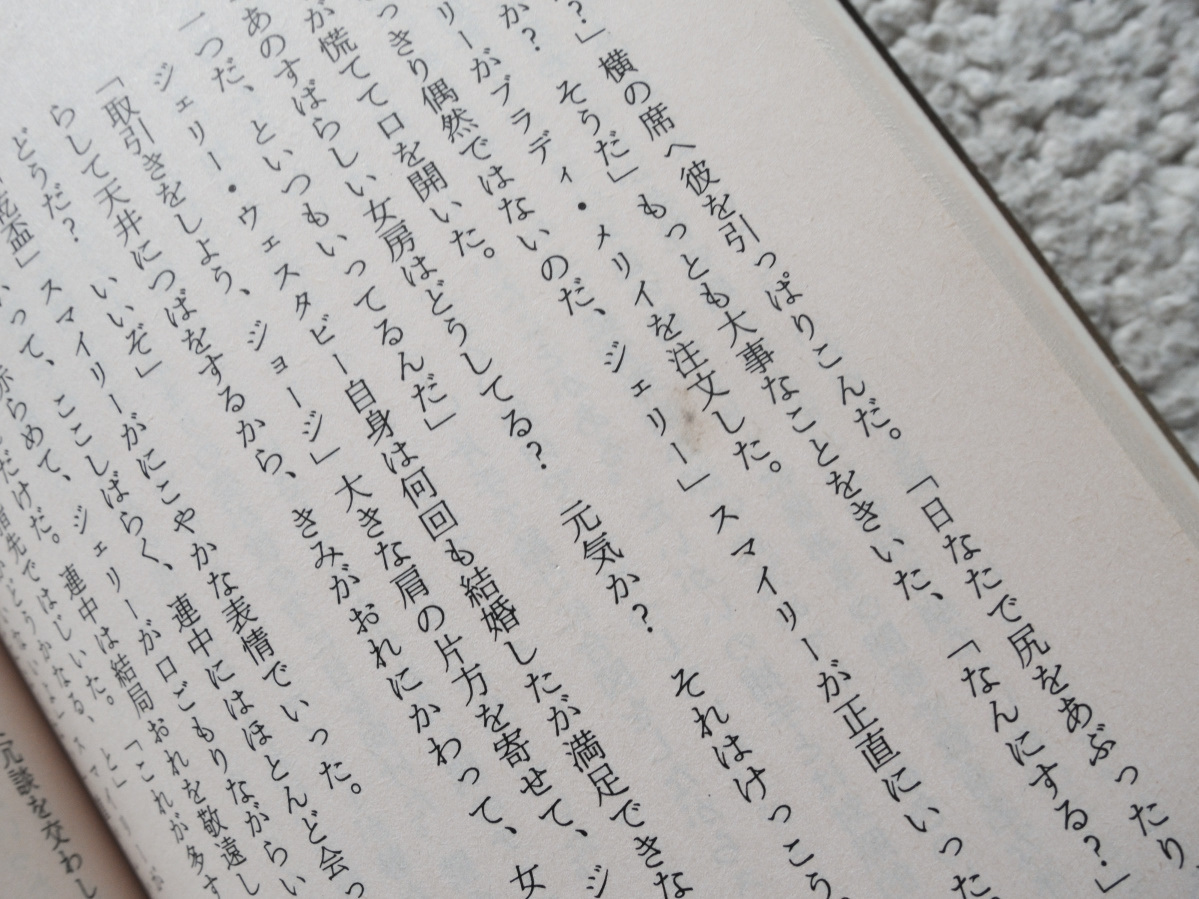 ？」横の席へ彼を引っぱりこんだ。「日なたで尻をあぶったり、
か？　そうだ」もっとも大事なことをきいた、「なんにする？」
リーがブラディ・メリイを注文した。
っきり偶然ではないのだ、ジェリー」スマイリーが正直にいった。
が慌てて口を開いた。
あのすばらしい女房はどうしてる？　元気か？　それはけっこう。
一つだ、といつもいってるんだ」
ジェリー・ウェスタビー自身は何回も結婚したが満足できな
「取引きをしよう、ジョージ」大きな肩の片方を寄せて、ジ
らして天井につばをするから、きみがおれにかわって、女
どうだ？　いいぞ」
乾盃」スマイリーがにこやかな表情でいった。
って、ここしばらく、連中にはほとんど会っ
赤らめて、ジェリーが口ごもりながらい
だけだ。連中は結局おれを敬遠し
指先ではじいた。「これが多す
どうかなる、
冗談を交わし